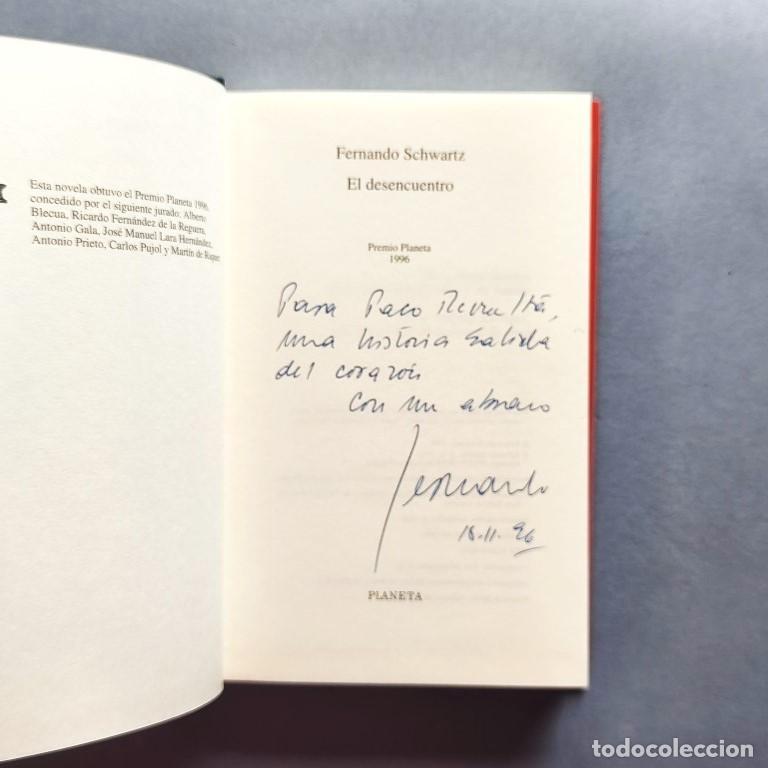 Esta novela obtuvo el Premio Planeta 1996,
concedido por el siguiente jurado: Alberto
Blecua, Ricardo Fernández de la Reguera,
Antonio Gala, José Manuel Lara Hernández,
Antonio Prieto, Carlos Pujol y Martín de Riquer
Fernando Schwartz
El desencuentro
Premio Planeta
1996
Para Paco
una historia salida
del corazón
con un abrazo
Fernando
18.11.96
PLANETA
todocoleccion